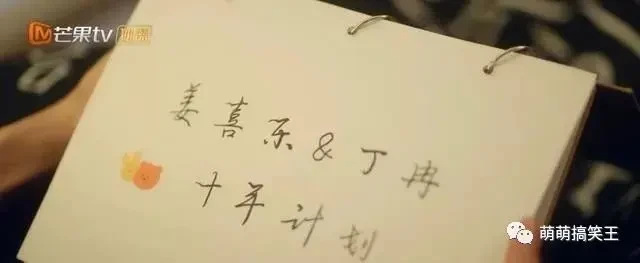 芒果tv 独播
姜喜乐&丁冉
十年计划
萌萌搞笑王